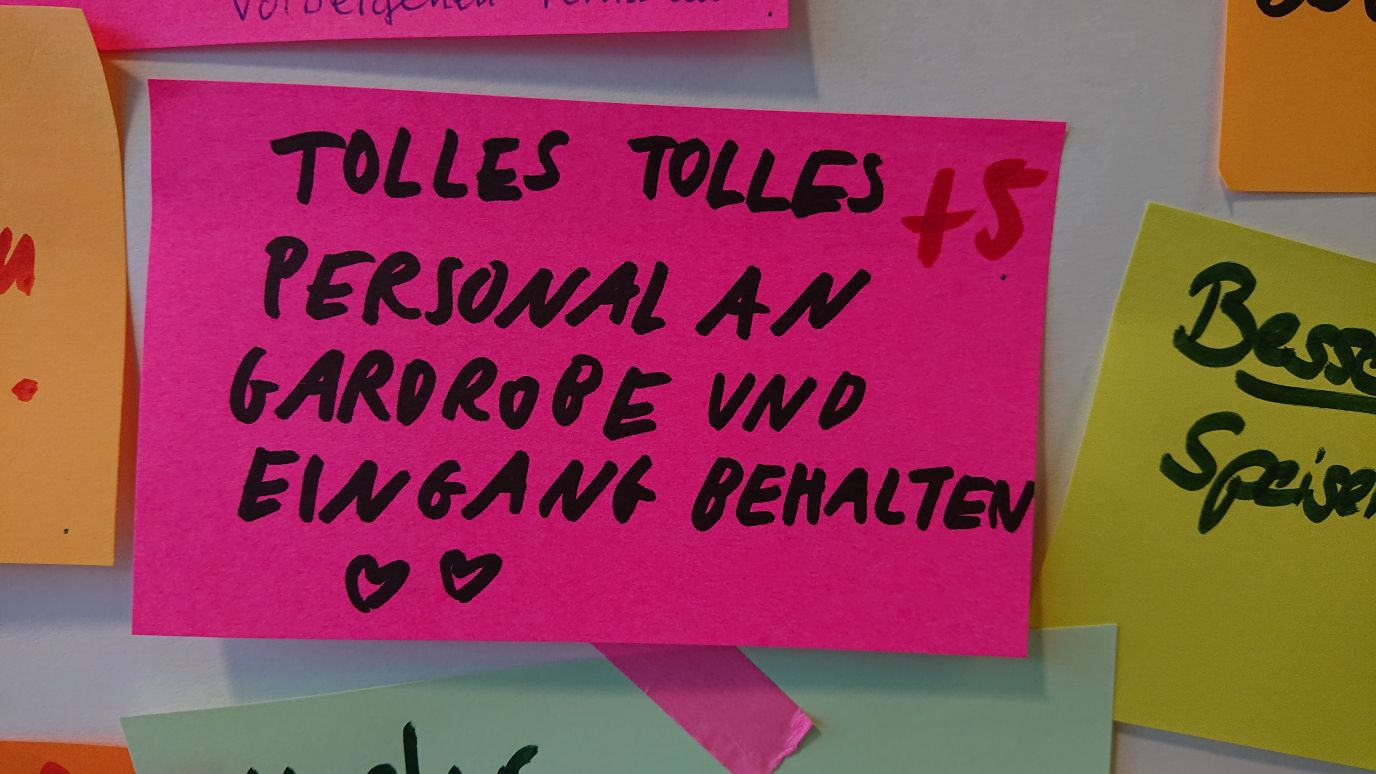 TOLLES TOLLES +5
PERSONAL AN
GARDROBE UND
EINGANG BEHALTEN
♡ ♡
Speisen